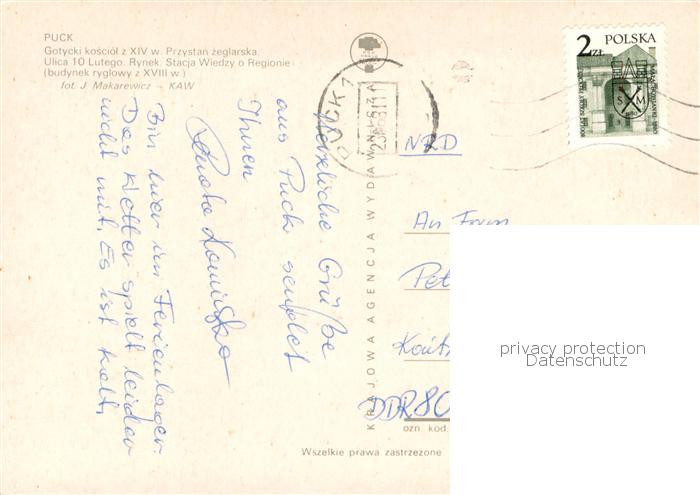 PUCK
Gotycki kościół z XIV w. Przystań żeglarska.
Ulica 10 Lutego. Rynek. Stacja Wiedzy o Regionie
(budynek ryglowy z XVIII w.)
fot. J. Makarewicz — KAW
KRAJOWA AGENCJA WYDAWNICZA
Herzliche Grüße
aus Puck sendet
Ihnen
Bin hier im Ferienlager.
Das Wetter spielt leider
nicht mit. Es ist kalt.
PUCK 1
2 ZŁ POLSKA
S M
NRD
An Frau
Pet
DDR 80
ozn kod.
Wszelkie prawa zastrzeżone
privacy protection
Datenschutz